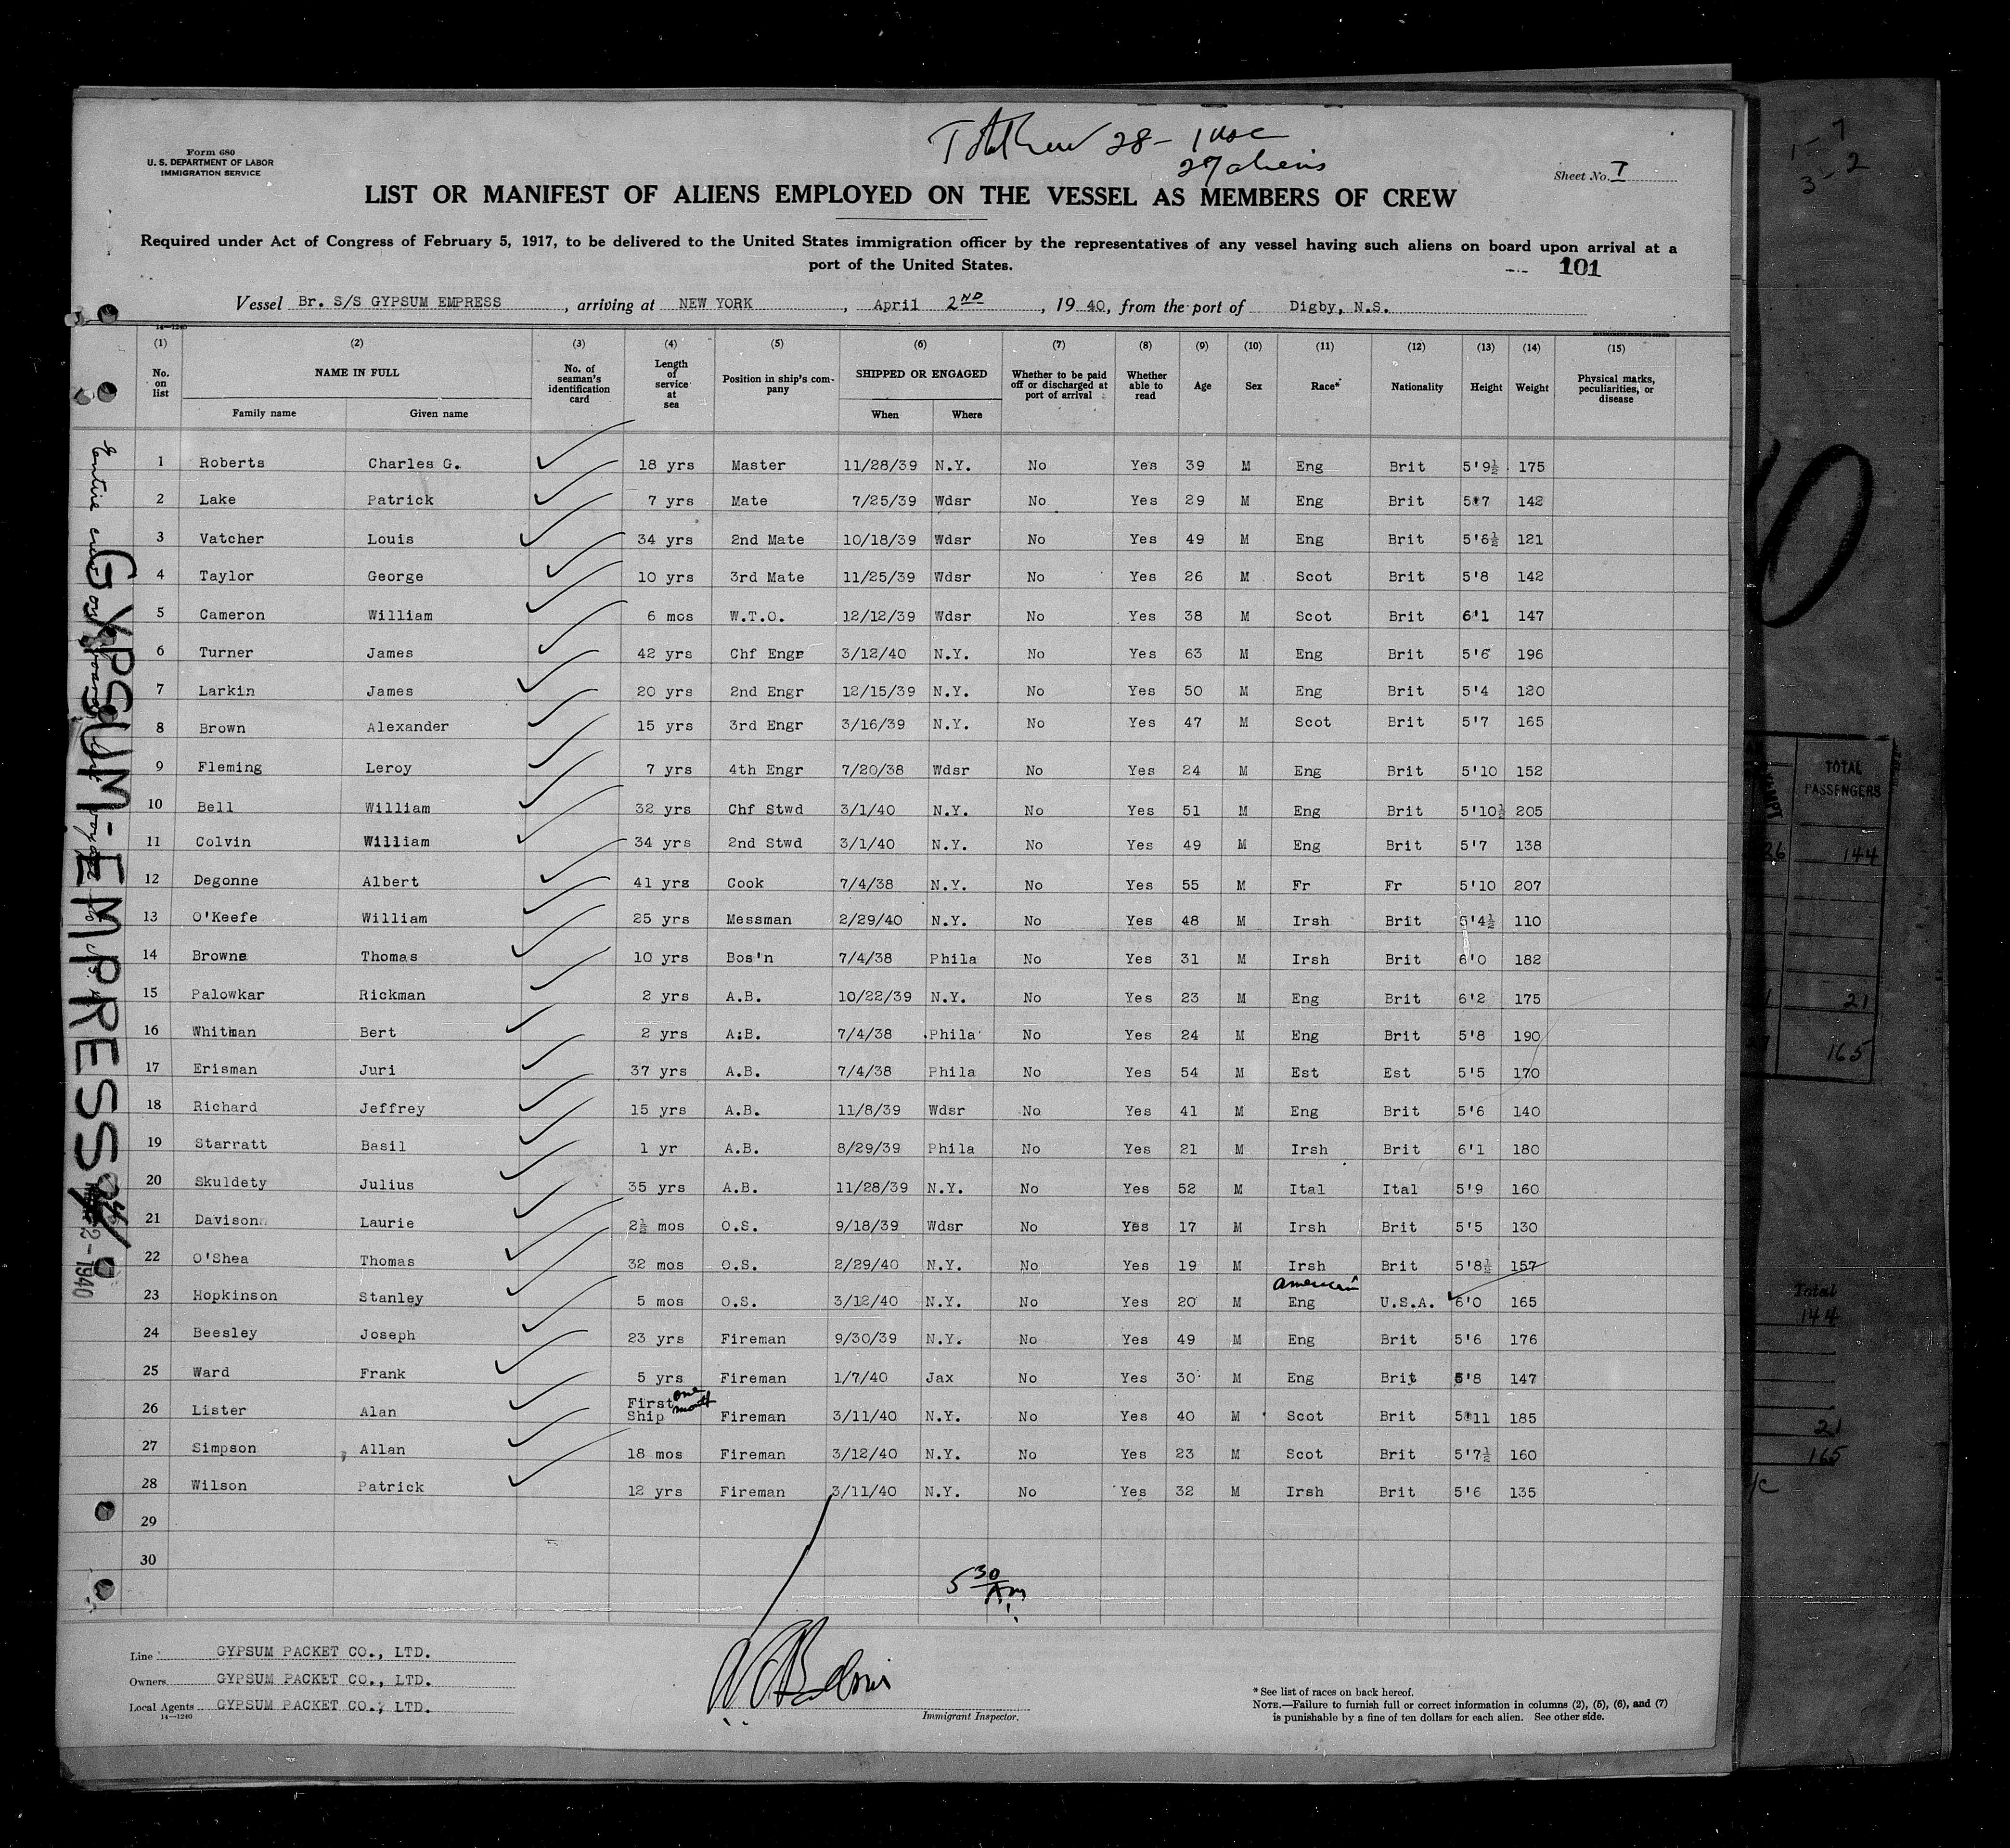 Total Crew 28 - 1 USC
27 aliens
Form 680
U. S. DEPARTMENT OF LABOR
IMMIGRATION SERVICE
Sheet No. I
LIST OR MANIFEST OF ALIENS EMPLOYED ON THE VESSEL AS MEMBERS OF CREW
Required under Act of Congress of February 5, 1917, to be delivered to the United States immigration officer by the representatives of any vessel having such aliens on board upon arrival at a
port of the United States.
101
Vessel Br. S/S GYPSUM EMPRESS, arriving at NEW YORK, April 2ND, 1940, from the port of Digby, N.S.
14—1240
(1) (2) (3) (4) (5) (6) (7) (8) (9) (10) (11) (12) (13) (14) (15)
No. on list NAME IN FULL No. of seaman's identification card Length of service at sea Position in ship's company SHIPPED OR ENGAGED Whether to be paid off or discharged at port of arrival Whether able to read Age Sex Race* Nationality Height Weight Physical marks, peculiarities, or disease
Family name Given name When Where
1 Roberts Charles G. 18 yrs Master 11/28/39 N.Y. No Yes 39 M Eng Brit 5'9½ 175
2 Lake Patrick 7 yrs Mate 7/25/39 Wdsr No Yes 29 M Eng Brit 5'7 142
3 Vatcher Louis 34 yrs 2nd Mate 10/18/39 Wdsr No Yes 49 M Eng Brit 5'6½ 121
4 Taylor George 10 yrs 3rd Mate 11/25/39 Wdsr No Yes 26 M Scot Brit 5'8 142
5 Cameron William 6 mos W.T.O. 12/12/39 Wdsr No Yes 38 M Scot Brit 6'1 147
6 Turner James 42 yrs Chf Engr 3/12/40 N.Y. No Yes 63 M Eng Brit 5'6 196
7 Larkin James 20 yrs 2nd Engr 12/15/39 N.Y. No Yes 50 M Eng Brit 5'4 120
8 Brown Alexander 15 yrs 3rd Engr 3/16/39 N.Y. No Yes 47 M Scot Brit 5'7 165
9 Fleming Leroy 7 yrs 4th Engr 7/20/38 Wdsr No Yes 24 M Eng Brit 5'10 152
10 Bell William 32 yrs Chf Stwd 3/1/40 N.Y. No Yes 51 M Eng Brit 5'10½ 205
11 Colvin William 34 yrs 2nd Stwd 3/1/40 N.Y. No Yes 49 M Eng Brit 5'7 138
12 Degonne Albert 41 yrs Cook 7/4/38 N.Y. No Yes 55 M Fr Fr 5'10 207
13 O'Keefe William 25 yrs Messman 2/29/40 N.Y. No Yes 48 M Irsh Brit 5'4½ 110
14 Browne Thomas 10 yrs Bos'n 7/4/38 Phila No Yes 31 M Irsh Brit 6'0 182
15 Palowkar Rickman 2 yrs A.B. 10/22/39 N.Y. No Yes 23 M Eng Brit 6'2 175
16 Whitman Bert 2 yrs A.B. 7/4/38 Phila No Yes 24 M Eng Brit 5'8 190
17 Erisman Juri 37 yrs A.B. 7/4/38 Phila No Yes 54 M Est Est 5'5 170
18 Richard Jeffrey 15 yrs A.B. 11/8/39 Wdsr No Yes 41 M Eng Brit 5'6 140
19 Starratt Basil 1 yr A.B. 8/29/39 Phila No Yes 21 M Irsh Brit 6'1 180
20 Skuldety Julius 35 yrs A.B. 11/28/39 N.Y. No Yes 52 M Ital Ital 5'9 160
21 Davison Laurie 2½ mos O.S. 9/18/39 Wdsr No Yes 17 M Irsh Brit 5'5 130
22 O'Shea Thomas 32 mos O.S. 2/29/40 N.Y. No Yes 19 M Irsh Brit 5'8½ 157
american
23 Hopkinson Stanley 5 mos O.S. 3/12/40 N.Y. No Yes 20 M Eng U.S.A. 6'0 165
24 Beesley Joseph 23 yrs Fireman 9/30/39 N.Y. No Yes 49 M Eng Brit 5'6 176
25 Ward Frank 5 yrs Fireman 1/7/40 Jax No Yes 30 M Eng Brit 5'8 147
26 Lister Alan First Ship one month Fireman 3/11/40 N.Y. No Yes 40 M Scot Brit 5'11 185
27 Simpson, Allan 18 mos Fireman 3/12/40 N.Y. No Yes 23 M Scot Brit 5'7½ 160
28 Wilson Patrick 12 yrs Fireman 3/11/40 N.Y. No Yes 32 M Irsh Brit 5'6 135
29
30
5 30 AM
Line GYPSUM PACKET CO., LTD.
Owners GYPSUM PACKET CO., LTD.
Local Agents GYPSUM PACKET CO., LTD.
14—1240
Immigrant Inspector.
* See list of races on back hereof.
NOTE.—Failure to furnish full or correct information in columns (2), (5), (6), and (7)
is punishable by a fine of ten dollars for each alien. See other side.
Entire crew on board
GYPSUM EMPRESS
2-1940
1 - 7
3 - 2
TOTAL
PASSENGERS
26 144
21
27 165
Total
144
21
165